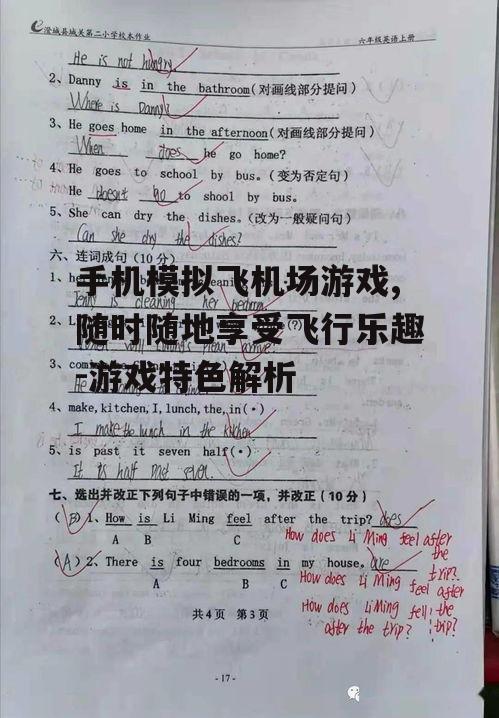 澄城县城关第二小学校本作业 六年级英语上册
He is not hungry
2、Danny is in the bathroom(对画线部分提问)
Where is Danny?
3、He goes home in the afternoon(对画线部分提问)
When does he go home?
4、He goes to school by bus.(变为否定句)
He doesn't go to shool by bus.
5、She can dry the dishes.(改为一般疑问句)
Can she dry the dishes?
六、连词成句(10分)
手机模拟飞机场游戏,
随时随地享受飞行乐趣
-游戏特色解析
4、make,kitchen,I,lunch,the,in(.)
I make the lunch in the kitchen
5、is past it seven half(.)
It is half past seven.
七、选出并改正下列句子中错误的一项,并改正(10分)
(B)1、How is Li Ming feel after the trip? does
A B C
How does Li Ming feel after the trip?
(A)2、There is four bedrooms in my house. are
A B C
How does Li Ming feel after
How does Li Ming fell the
after the trip? trip?
共4页 第3页
-17-